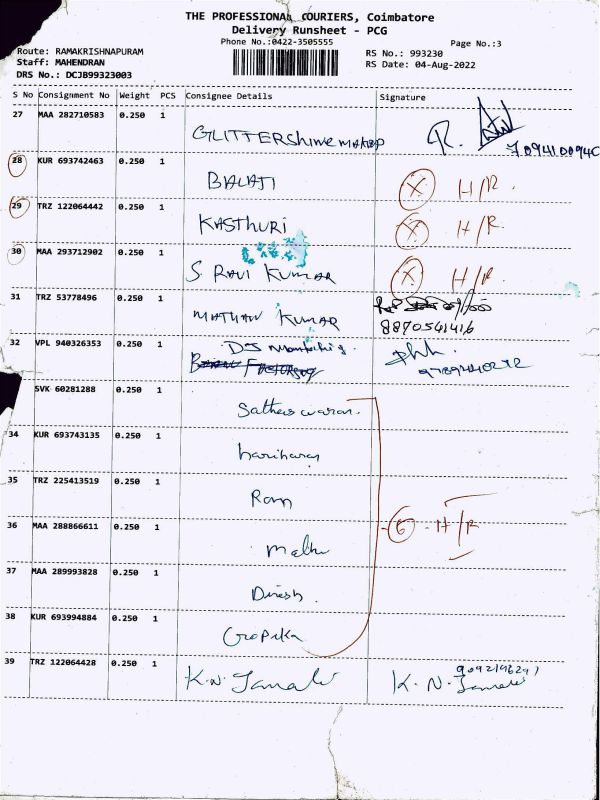 THE PROFESSIONAL COURIERS, Coimbatore
Delivery Runsheet - PCG
Phone No.:0422-3505555
Page No.:3
Route: RAMAKRISHNAPURAM
RS No.: 993230
Staff: MAHENDRAN
RS Date: 04-Aug-2022
DRS No.: DCJB99323003
S No Consignment No Weight PCS Consignee Details Signature
27 MAA 282710583 0.250 1
GLITTERSHINE R.
28 KUR 693742463 0.250 1
BALAJI X H/R.
29 TRZ 122064442 0.250 1
KASTHURI X H/R.
30 MAA 293712902 0.250 1
S. RAVI KUMAR X H/R.
31 TRZ 53778496 0.250 1
MATHAN KUMAR 8870541416
32 VPL 940326353 0.250 1
SVK 60281288 0.250 1
Satheeswaran.
34 KUR 693743135 0.250 1
hariharan
35 TRZ 225413519 0.250 1
Ram
36 MAA 288866611 0.250 1
6 - H/R
37 MAA 289993828 0.250 1
Dinesh.
38 KUR 693994884 0.250 1
Gopika
39 TRZ 122064428 0.250 1
K.N. K. N.